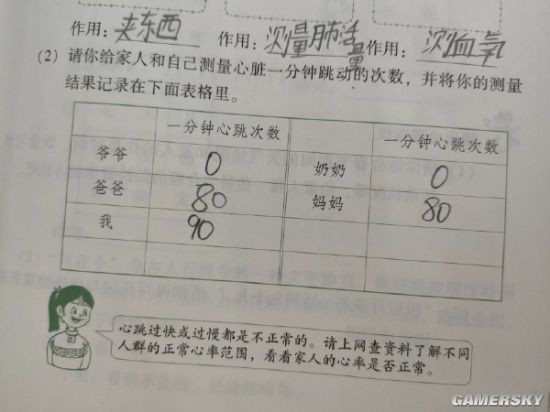 作用：夹东西 作用：测量肺活量 作用：测血氧
(2) 请你给家人和自己测量心脏一分钟跳动的次数，并将你的测量
结果记录在下面表格里。
一分钟心跳次数 一分钟心跳次数
爷爷 0 奶奶 0
爸爸 80 妈妈 80
我 90
心跳过快或过慢都是不正常的。请上网查资料了解不同
人群的正常心率范围，看看家人的心率是否正常。
GAMERSKY